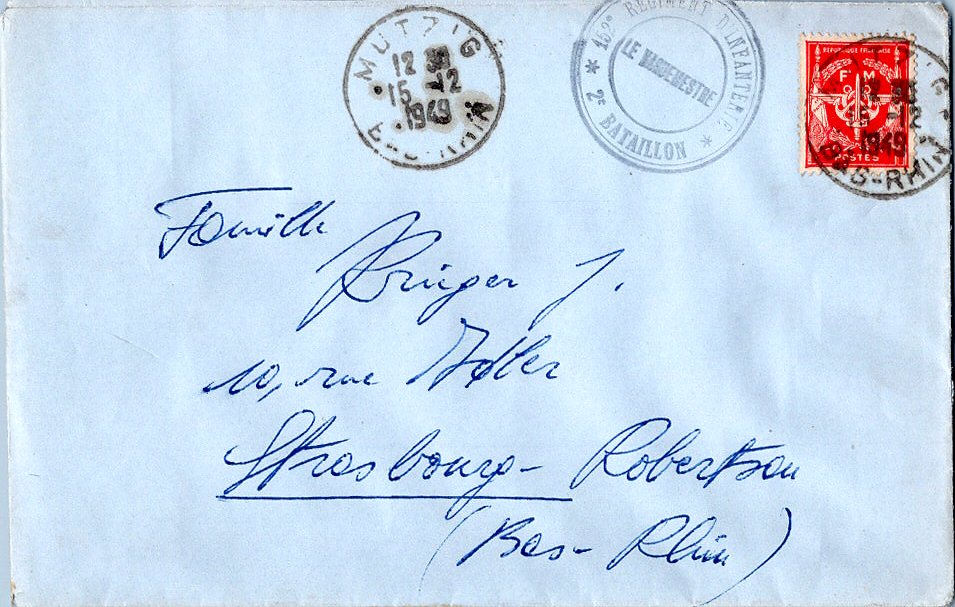 MUTZIG
12 30
15 -12
1949
BAS-RHIN
* 158e REGIMENT D'INFANTERIE *
LE VAGUEMESTRE
2e BATAILLON
REPUBLIQUE FRANÇAISE
F M
POSTES
12 30
15 -12
1949
BAS-RHIN
Famille
Krieger J.
10, rue Adler
Strasbourg - Robertsau
(Bas-Rhin)